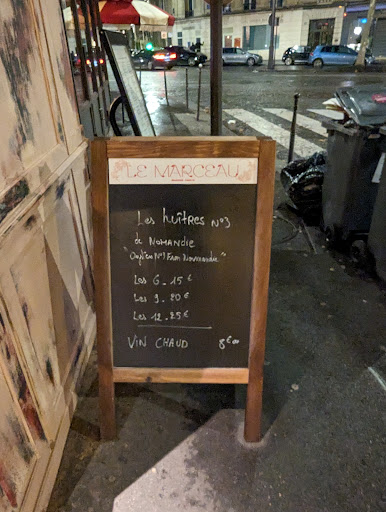 LE MARCEAU
Les huîtres N°3
de NORMANDIE
"Oysters N°1 From Normandie"
Les 6 - 15 €
Les 9 - 20 €
Les 12 - 25 €
VIN CHAUD 8€00